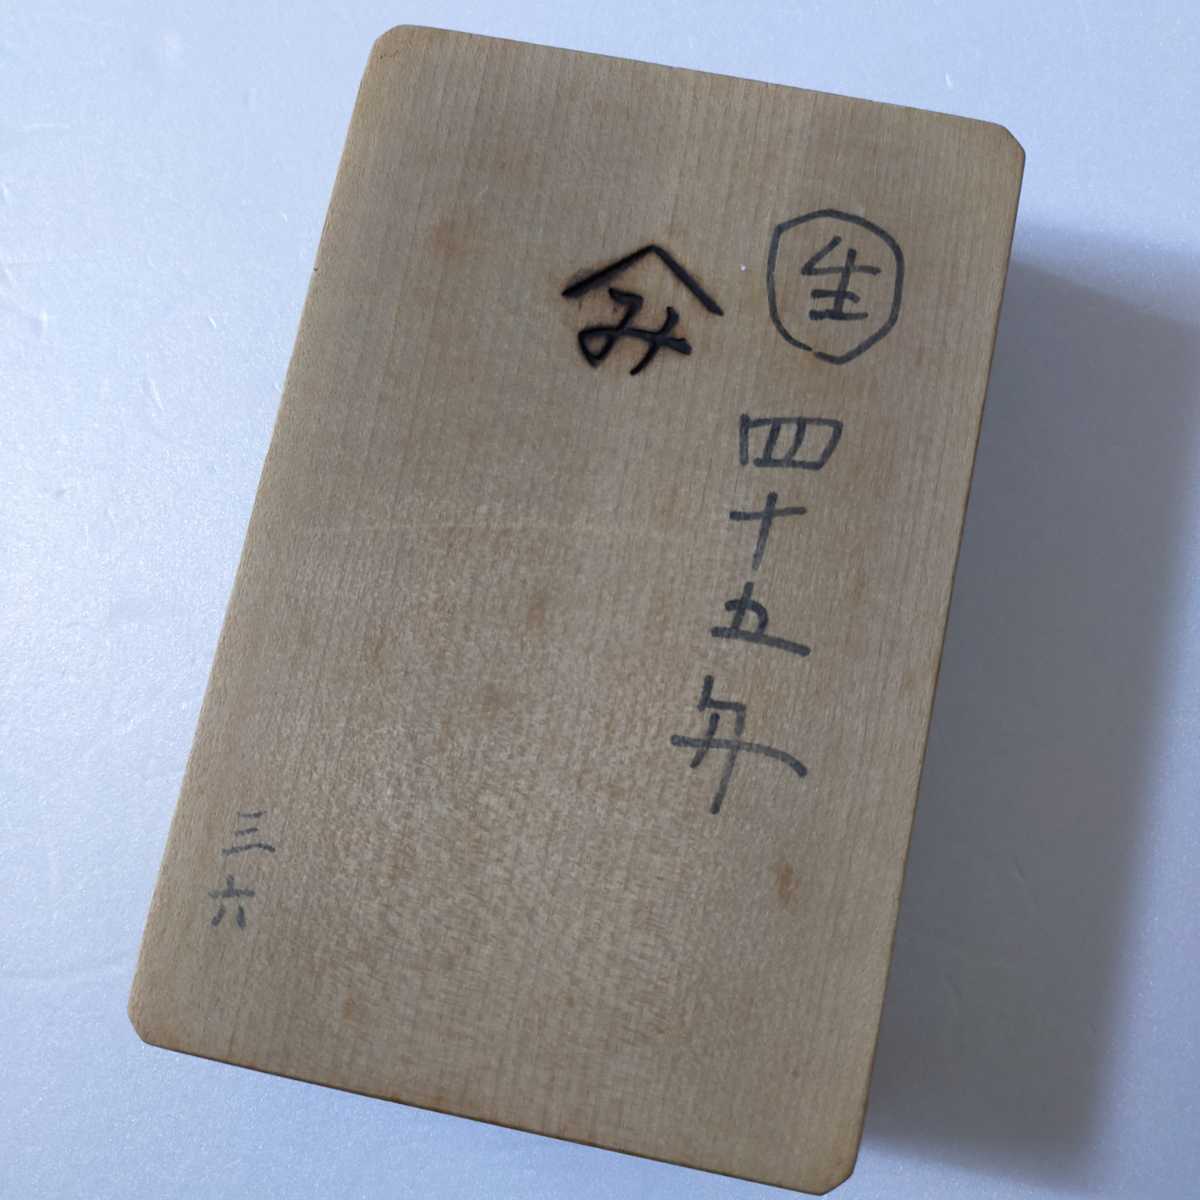 生
四十五年
み
三六